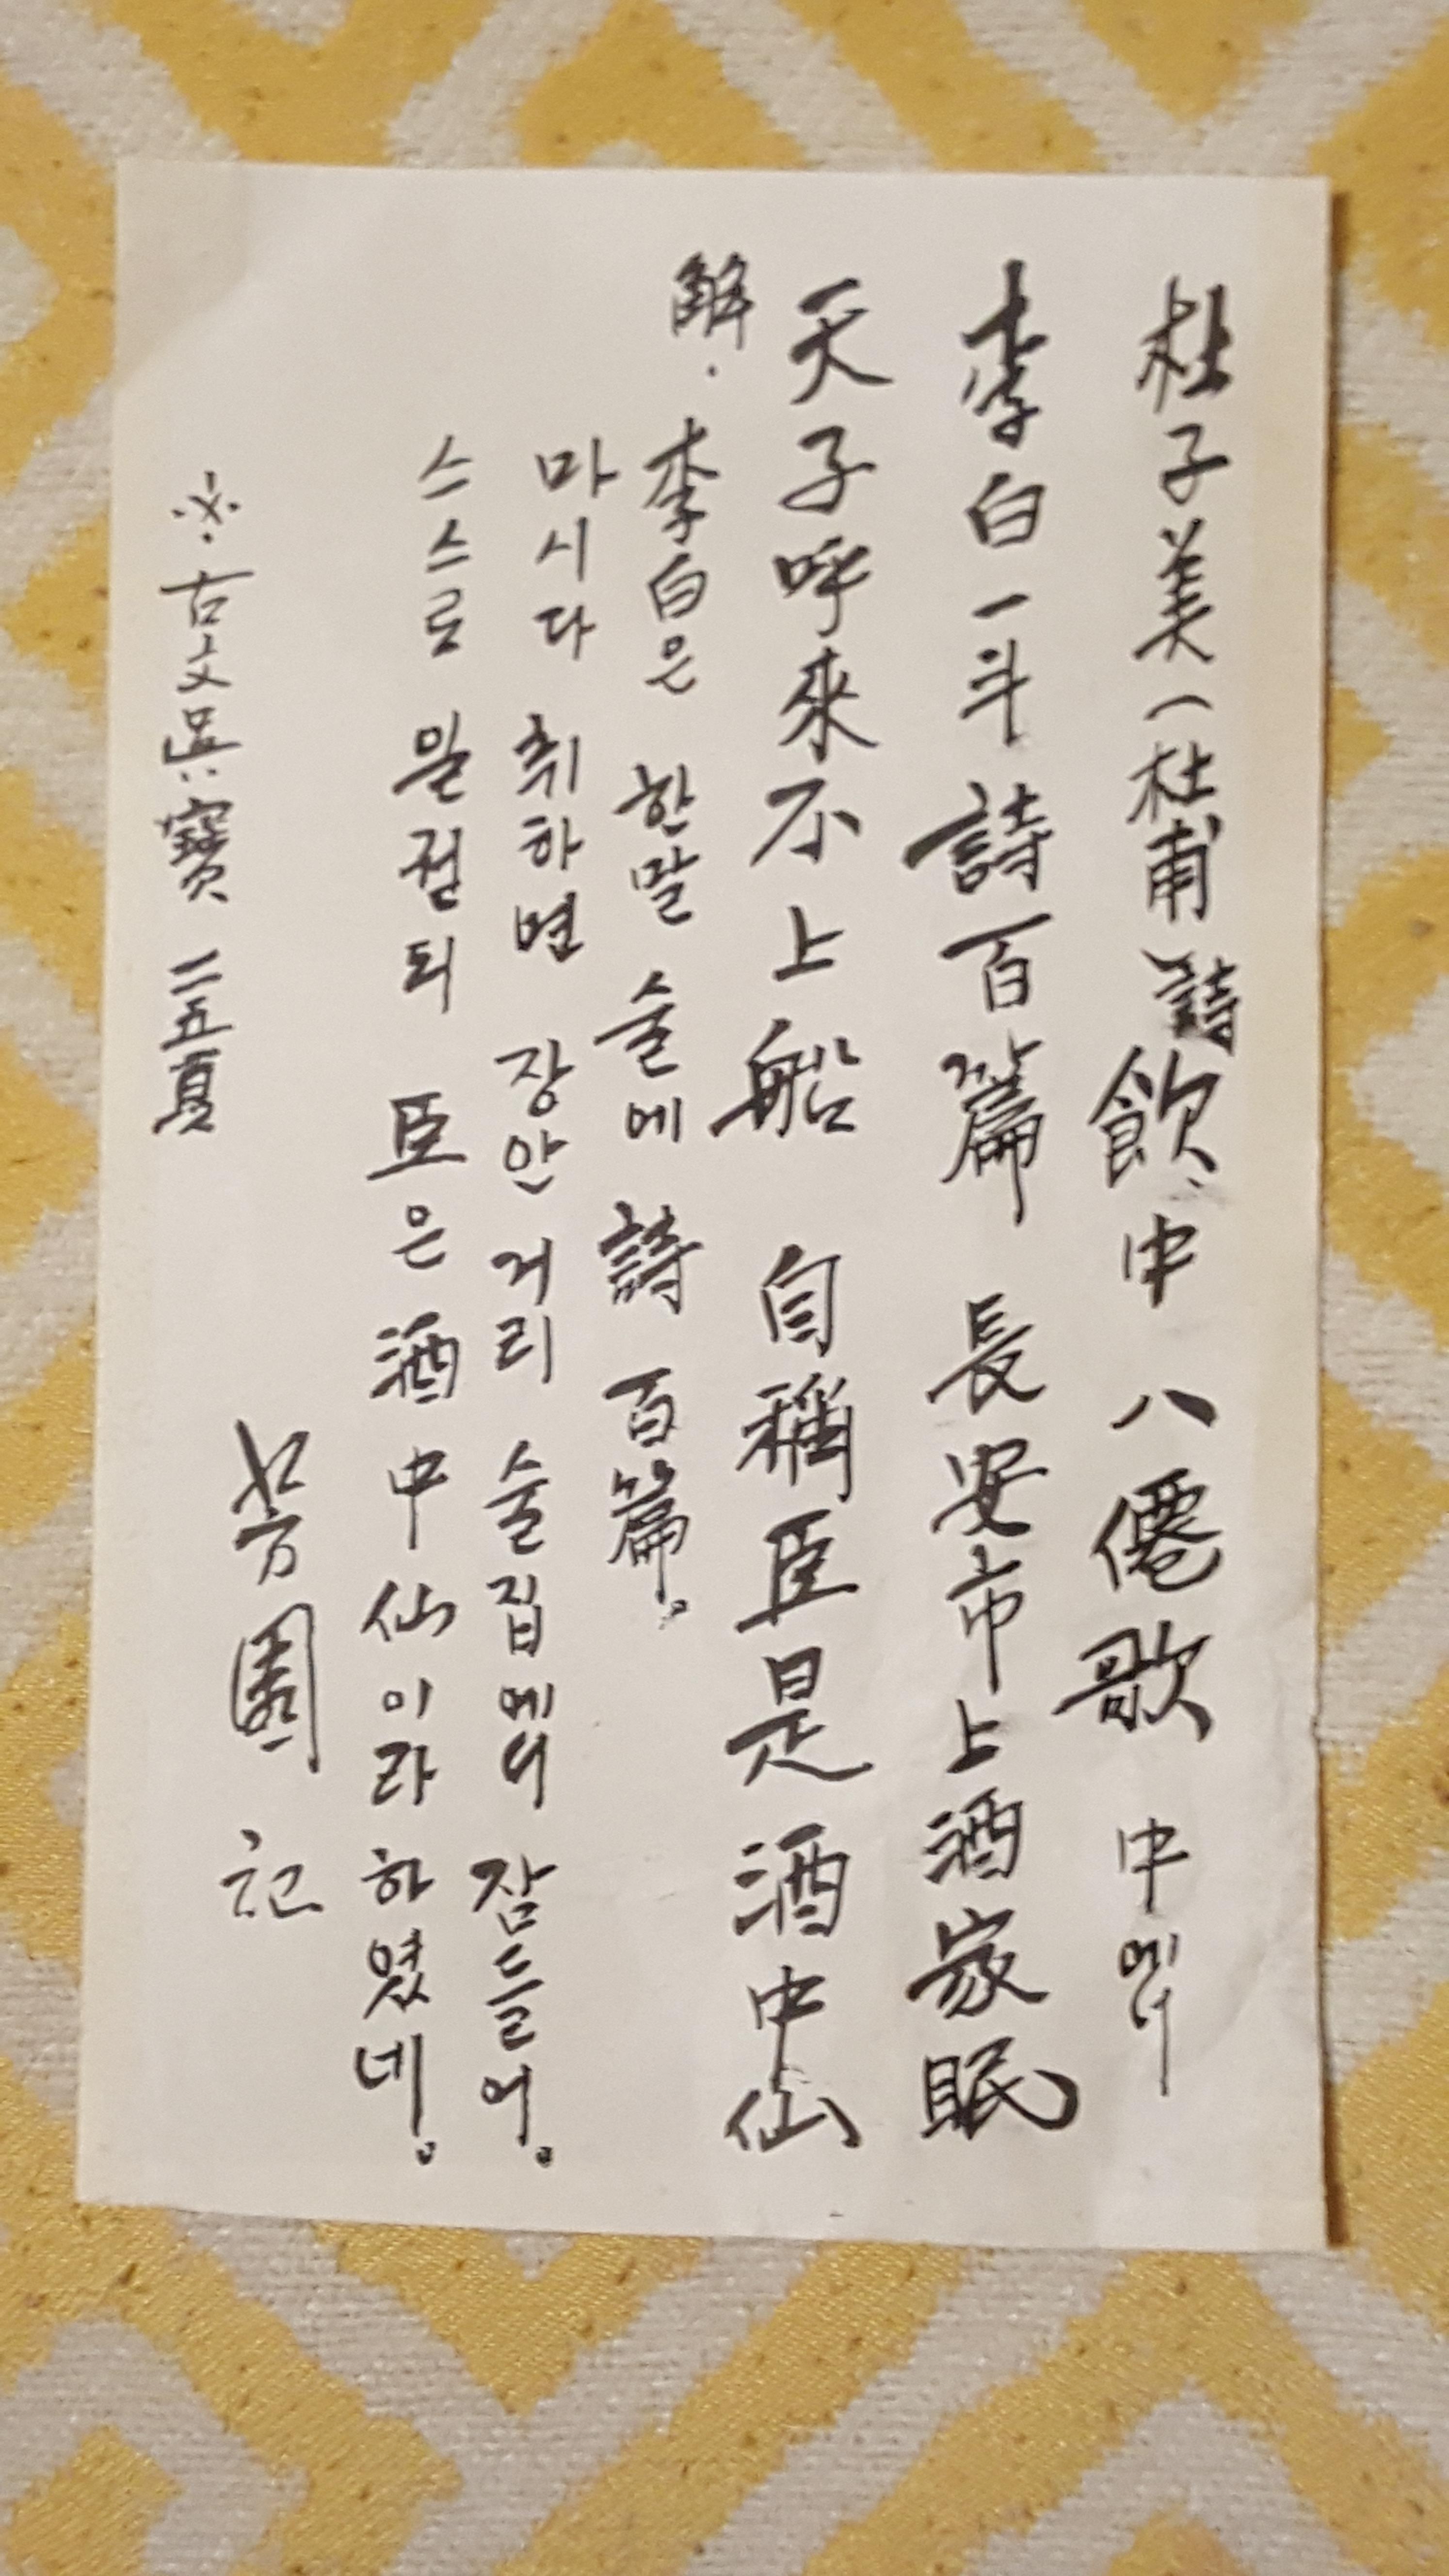 杜子美(杜甫)詩 飮中 八僊歌 中에서
李白一斗詩百篇 長安市上酒家眠
天子呼來不上船 自稱臣是酒中仙
解. 李白은 한말 술에 詩 百篇。
마시다 취하면 장안 거리 술집에서 잠들어。
스스로 일컫되 臣은 酒中仙이라 하였네。
園 記
※古文眞寶 二五頁